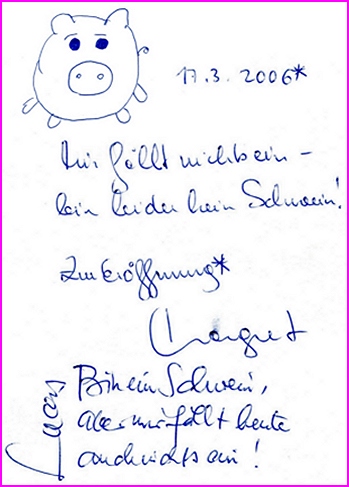 17.3.2006*
Mir fällt nichts ein –
bin leider kein Schwein!
Zur Eröffnung*
Margret
Bin ein Schwein,
aber mir fällt heute
auch nichts ein!